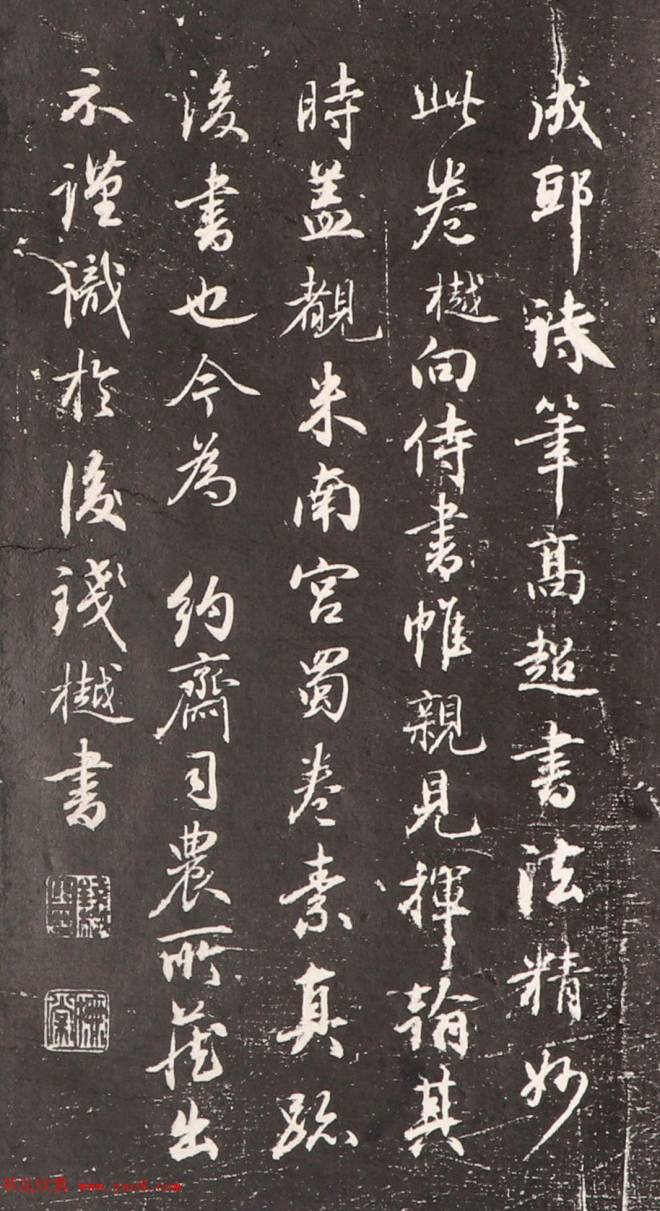 成邸詩筆高超書法精妙
此卷樾向侍書帷親見揮翰其
時盖觀米南宮蜀卷素真跡
後書也今為 約齋司農所藏出
示謹識於後錢樾書